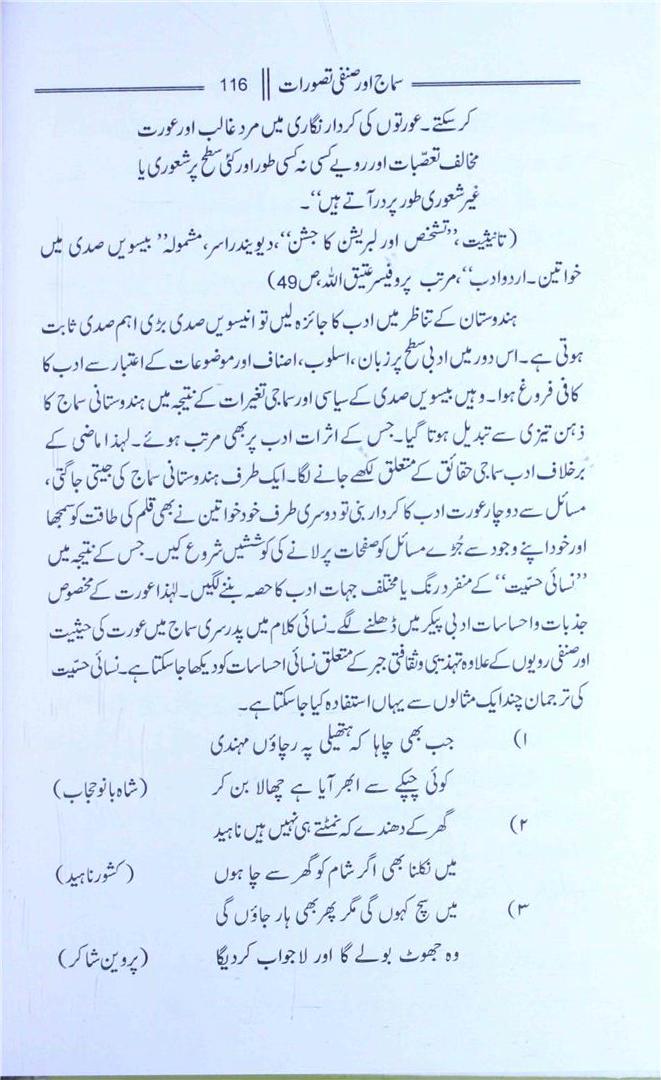 سماج اور صنفی تصورات || 116
کر سکتے۔ عورتوں کی کردار نگاری میں مرد غالب اور عورت
مخالف تعصّبات اور رویے کسی نہ کسی طور اور کئی سطح پر شعوری یا
غیر شعوری طور پر در آتے ہیں‘‘۔
(تانیثیت، ’’تشخص اور لبریشن کا جشن‘‘، دیویندر اسر، مشمولہ ’’بیسویں صدی میں
خواتین۔ اردو ادب‘‘، مرتب پروفیسر عتیق اللہ، ص49)
ہندوستان کے تناظر میں ادب کا جائزہ لیں تو انیسویں صدی بڑی اہم صدی ثابت
ہوتی ہے۔ اس دور میں ادبی سطح پر زبان، اسلوب، اصناف اور موضوعات کے اعتبار سے ادب کا
کافی فروغ ہوا۔ وہیں بیسویں صدی کے سیاسی اور سماجی تغیرات کے نتیجہ میں ہندوستانی سماج کا
ذہن تیزی سے تبدیل ہوتا گیا۔ جس کے اثرات ادب پر بھی مرتب ہوئے۔ لہذا ماضی کے
برخلاف ادب سماجی حقائق کے متعلق لکھے جانے لگا۔ ایک طرف ہندوستانی سماج کی جیتی جاگتی،
مسائل سے دوچار عورت ادب کا کردار بنی تو دوسری طرف خود خواتین نے بھی قلم کی طاقت کو سمجھا
اور خود اپنے وجود سے جُڑے مسائل کو صفحات پر لانے کی کوششیں شروع کیں۔ جس کے نتیجہ میں
’’نسائی حسّیت‘‘ کے منفرد رنگ یا مختلف جہات ادب کا حصہ بننے لگیں۔ لہٰذا عورت کے مخصوص
جذبات و احساسات ادبی پیکر میں ڈھلنے لگے۔ نسائی کلام میں پدرسری سماج میں عورت کی حیثیت
اور صنفی رویوں کے علاوہ تہذیبی و ثقافتی جبر کے متعلق نسائی احساسات کو دیکھا جا سکتا ہے۔ نسائی حسّیت
کی ترجمان چند ایک مثالوں سے یہاں استفادہ کیا جا سکتا ہے۔
۱) جب بھی چاہا کہ ہتھیلی پہ رچاؤں مہندی
کوئی چپکے سے ابھر آیا ہے چھالا بن کر (شاہ بانو حجاب)
۲) گھر کے دھندے کہ نمٹتے ہی نہیں ہیں ناہید
میں نکلنا بھی اگر شام کو گھر سے چاہوں (کشور ناہید)
۳) میں سچ کہوں گی مگر پھر بھی ہار جاؤں گی
وہ جھوٹ بولے گا اور لاجواب کر دیگا (پروین شاکر)